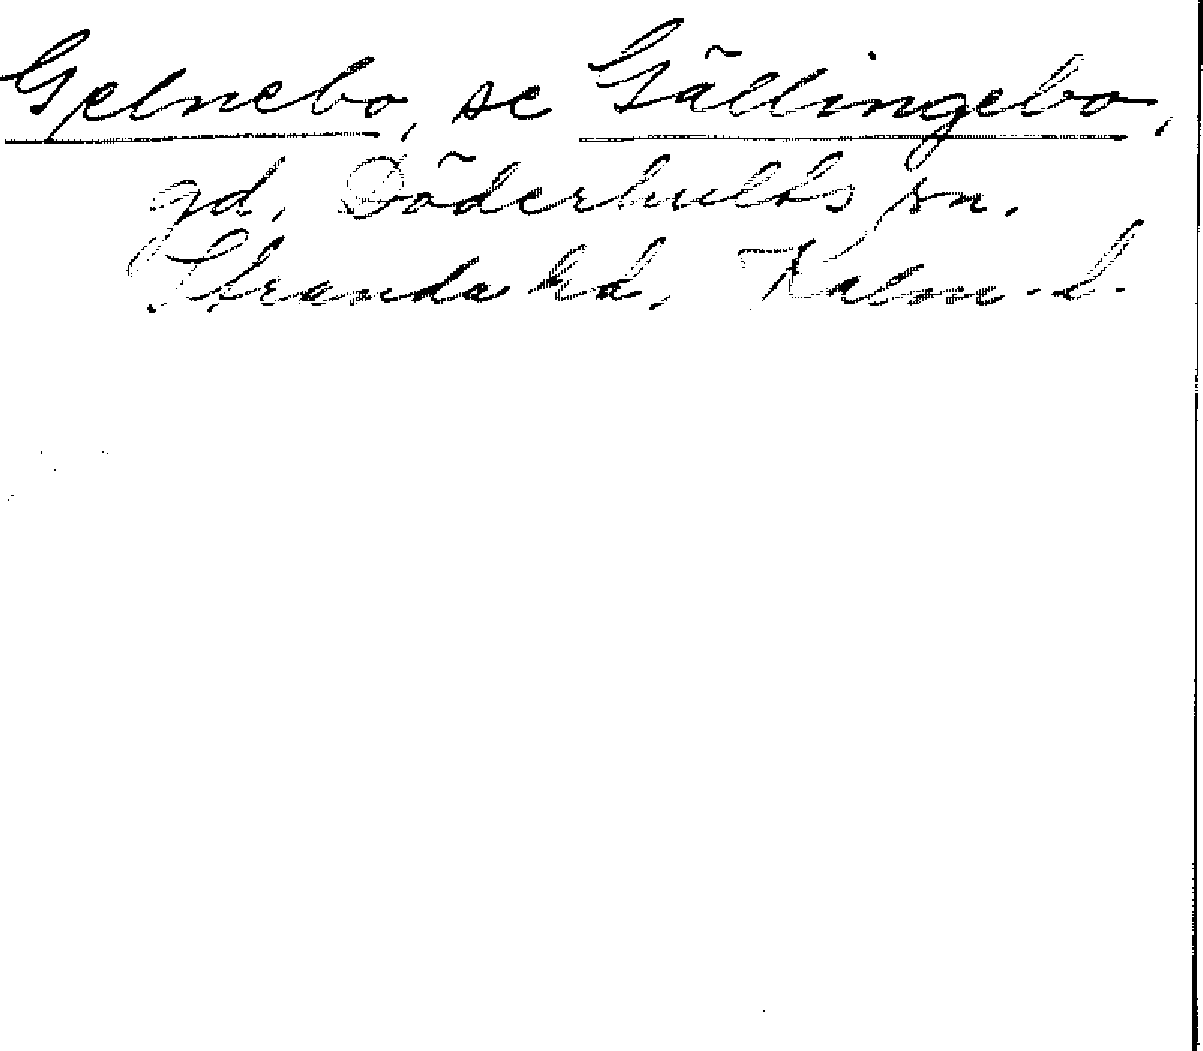 Gelnebo, se Gällingebo,
gd, Döderhults sn.
Stranda hd, Kalm. l.